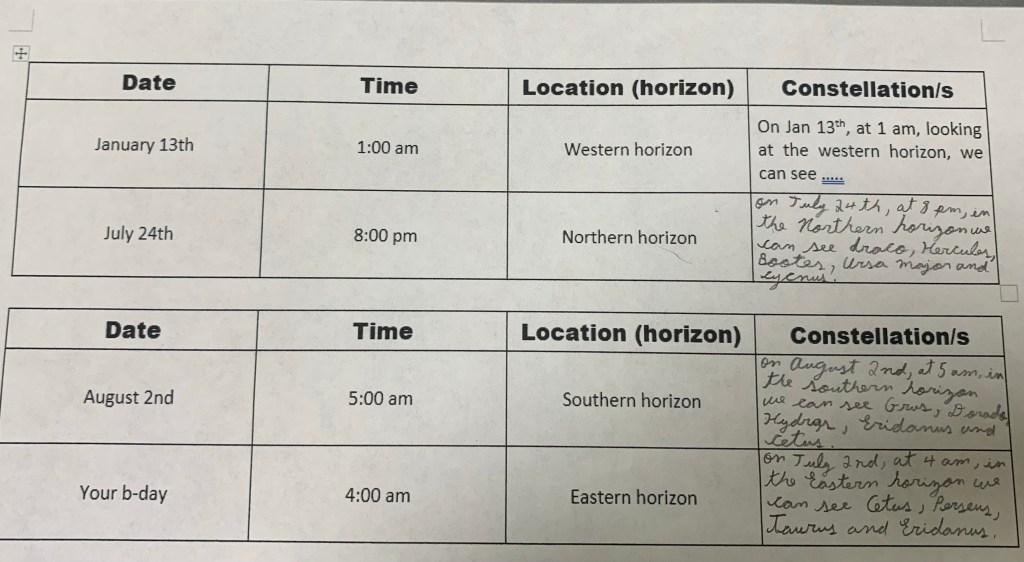 Date Time Location (horizon) Constellation/s
January 13th 1:00 am Western horizon On Jan 13th, at 1 am, looking
at the western horizon, we
can see .....
July 24th 8:00 pm Northern horizon on July 24th, at 8 pm, in
the Northern horizon we
can see draco, Hercules,
Bootes, Ursa major and
cycnus.
Date Time Location (horizon) Constellation/s
August 2nd 5:00 am Southern horizon on August 2nd, at 5 am, in
the southern horizon
we can see Grus, Dorado
Hydrar, Eridanus and
Cetus.
Your b-day 4:00 am Eastern horizon on July 2nd, at 4 am, in
the Eastern horizon we
can see Cetus, Perseus,
Taurus and Eridanus.